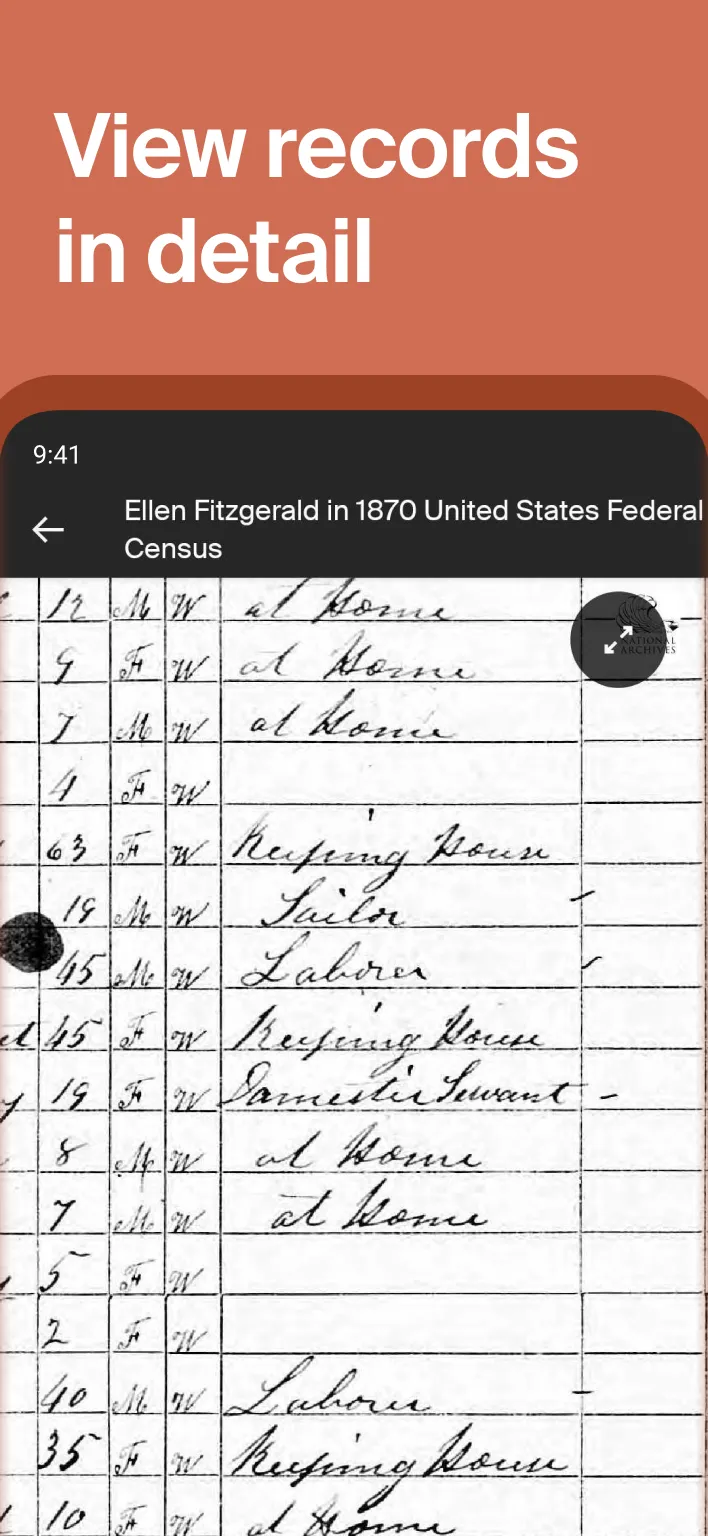 View records
in detail
9:41
Ellen Fitzgerald in 1870 United States Federal
Census
12 M W at Home
NATIONAL
ARCHIVES
9 F W at Home
7 M W at Home
4 F W
63 F W Keeping House
19 M W Sailor
45 M W Laborer
45 F W Keeping House
19 F W Domestic Servant
8 M W at Home
7 M W at Home
5 F W
2 F W
40 M W Laborer
35 F W Keeping House
10 F W at Home